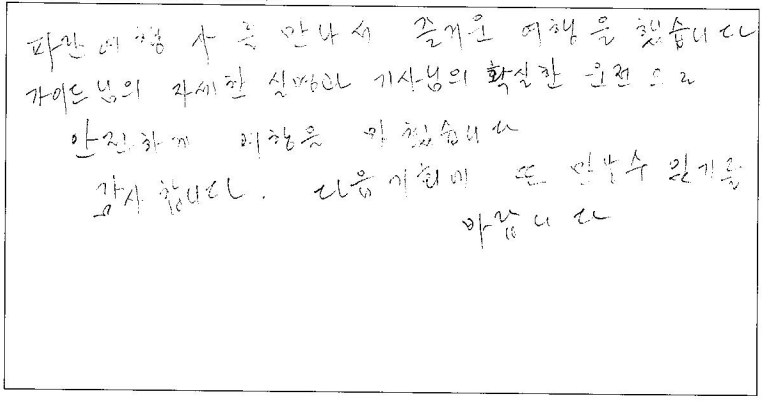 파란여행사를 만나서 즐거운 여행을 했습니다
가이드님의 자세한 설명과 기사님의 확실한 운전으로
안전하게 여행을 마쳤습니다
감사합니다. 다음기회에 또 만날수 있기를
바랍니다